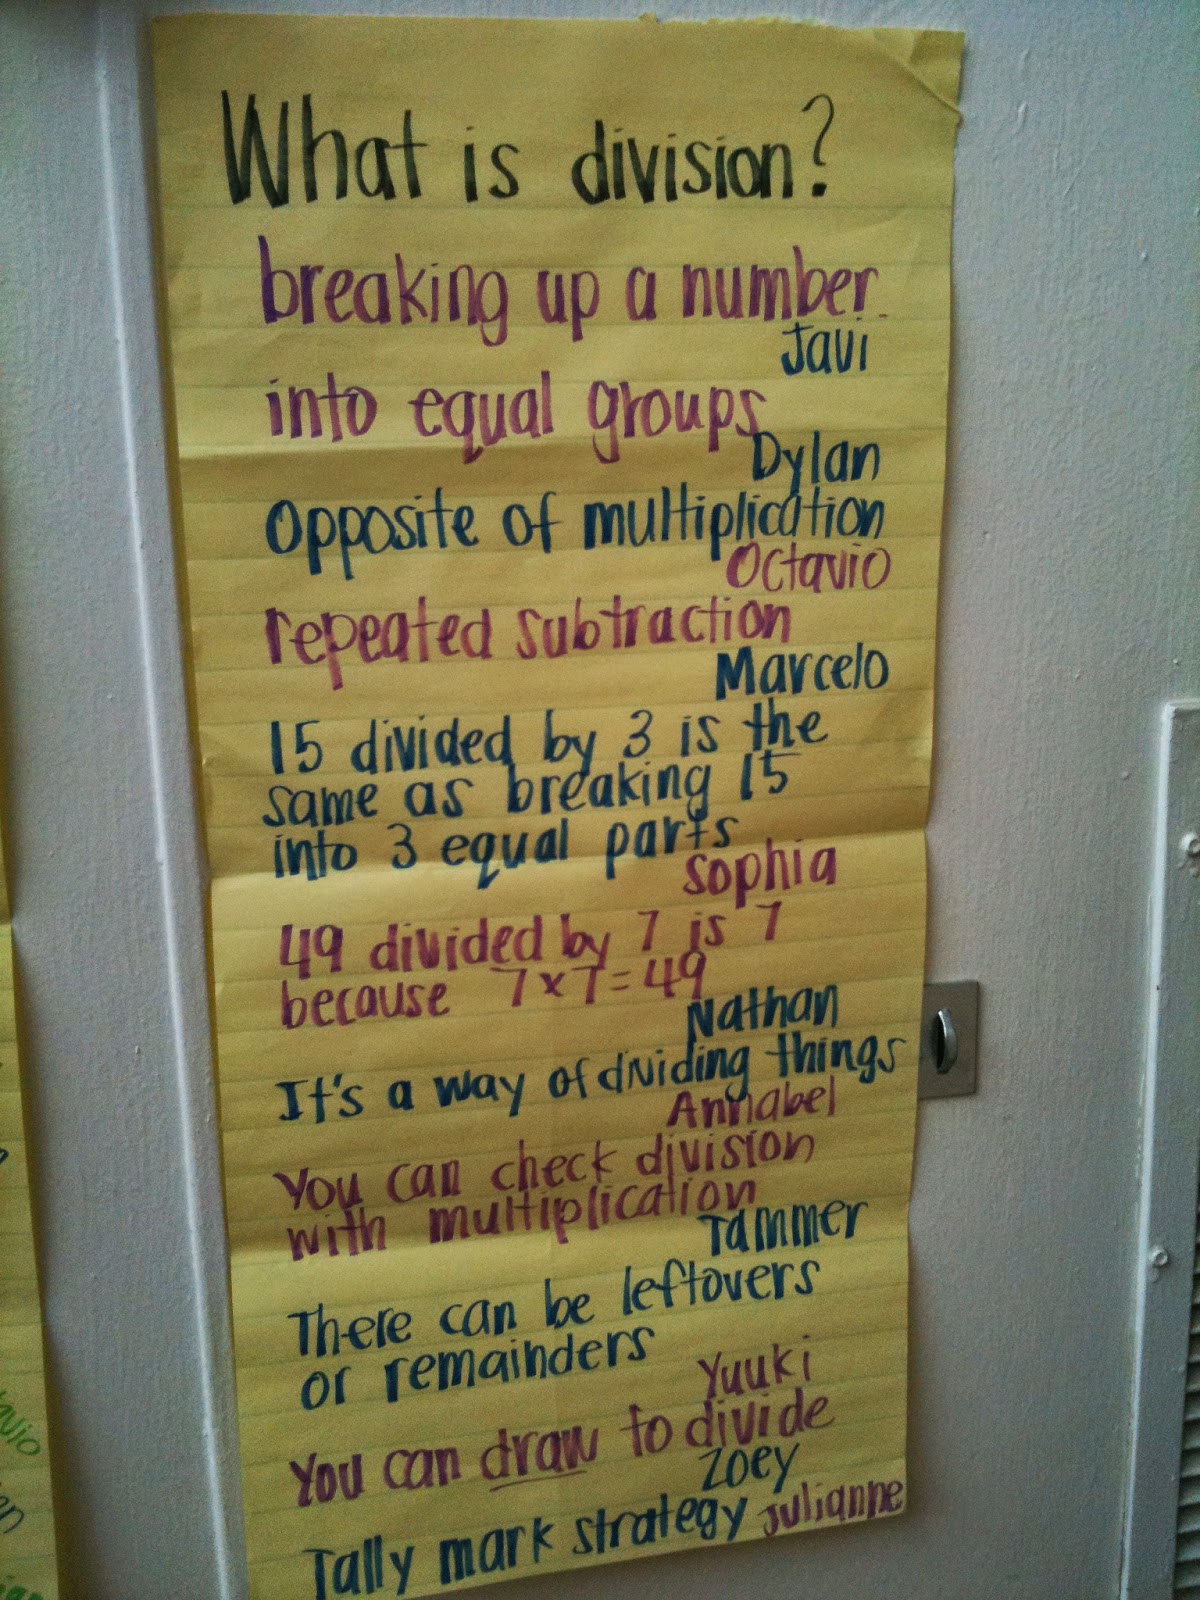 What is division?
breaking up a number
Javi
into equal groups
Dylan
Opposite of multiplication
Octavio
repeated subtraction
Marcelo
15 divided by 3 is the
same as breaking 15
into 3 equal parts
Sophia
49 divided by 7 is 7
because 7x7=49
Nathan
It's a way of dividing things
Annabel
You can check division
with multiplication
Tammer
There can be leftovers
or remainders
Yuuki
You can draw to divide
Zoey
Tally mark strategy Julianne